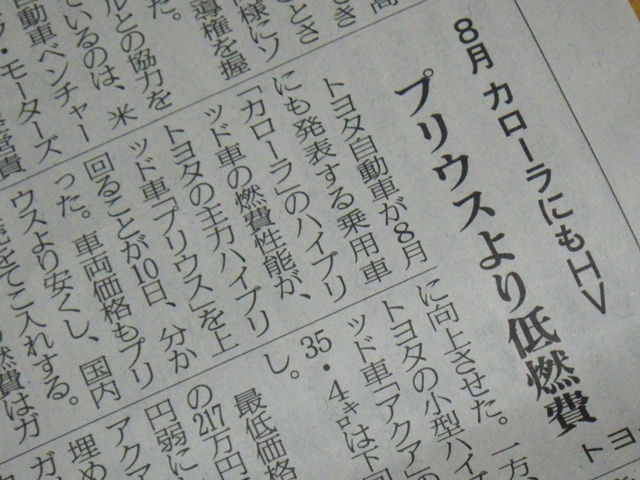 8月 カローラにもHV
プリウスより低燃費
トヨタ自動車が8月
にも発表する乗用車
「カローラ」のハイブリ
ッド車の燃費性能が、
トヨタの主力ハイブリ
ッド車「プリウス」を上
回ることが10日、分か
った。車両価格もプリ
ウスより安くし、国内
をてこ入れする。
燃費はガ
に向上させた。一方、
トヨタの小型ハイブ
ッド車「アクア」の
35・4㌔は下回
し。
最低価格
の217万円
円弱に
アクア
埋め
ガ
トヨ
高
さき
ときさ
様にソ
導権を握
た。
ルとの協力を
ているのは、米
動車ベンチャー
・モーターズ
営責